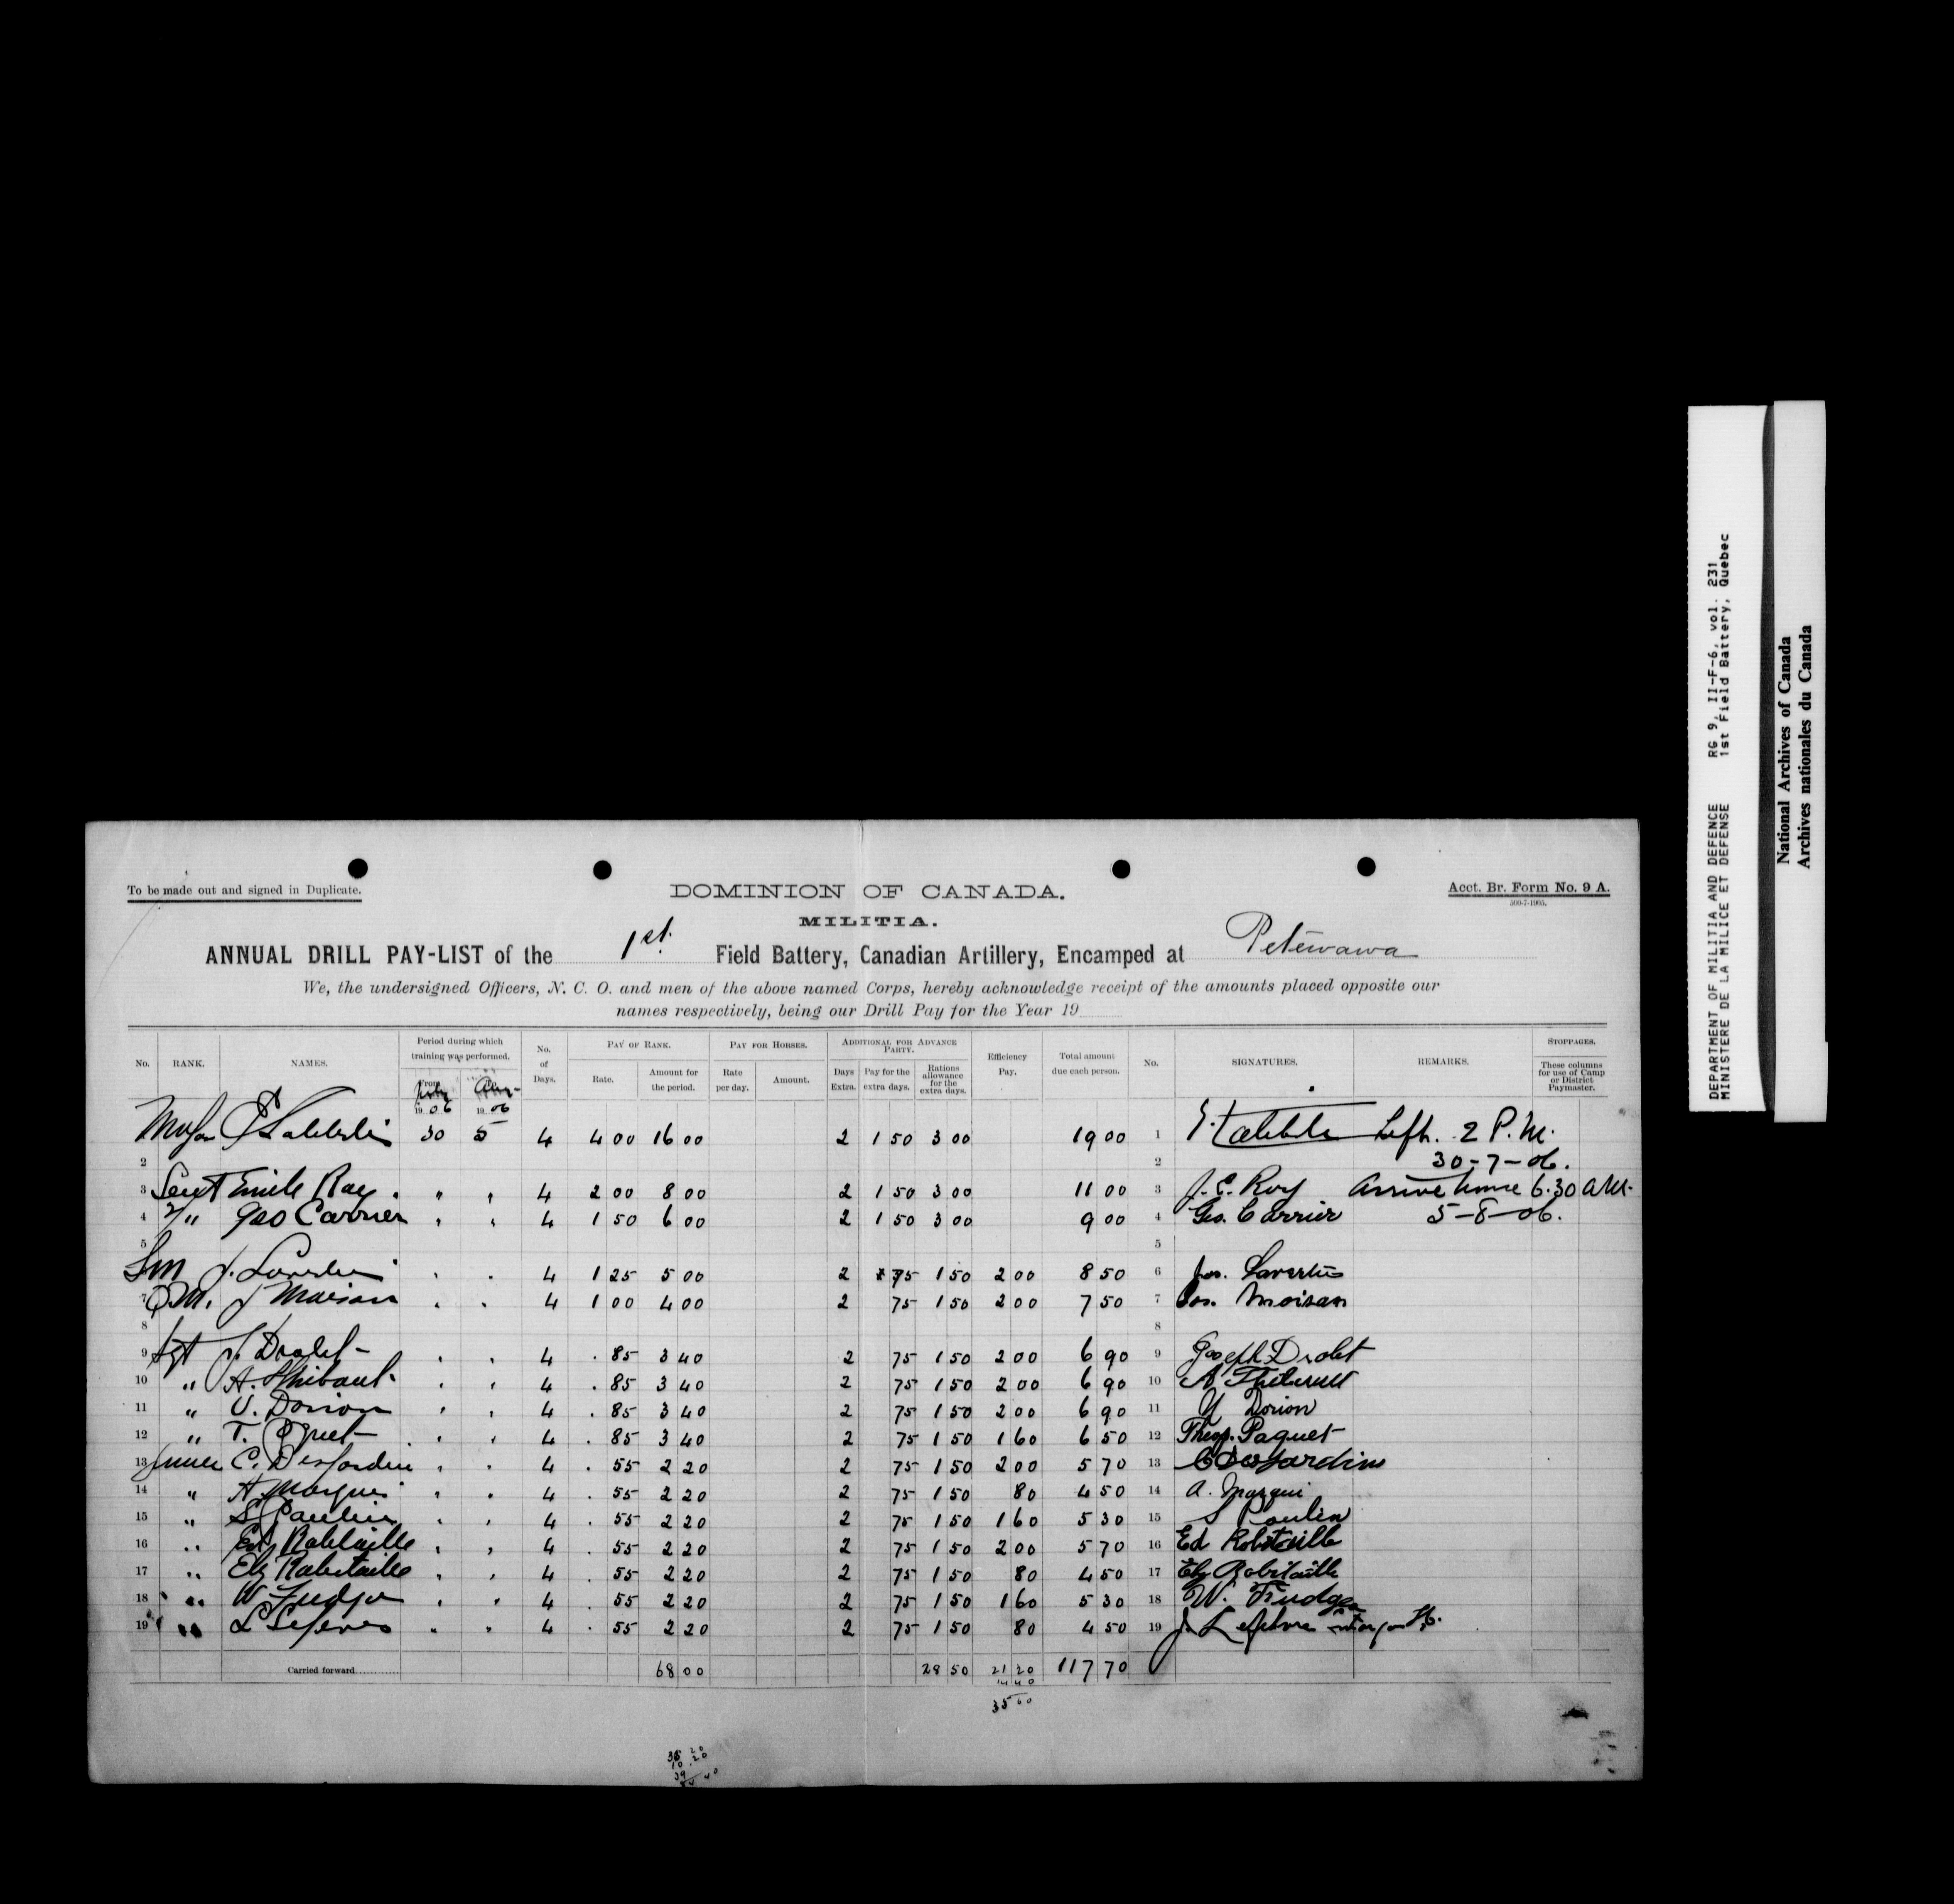 To be made out and signed in Duplicate.
DOMINION OF CANADA.
Acct. Br. Form No. 9 A.
500-7-1905.
MILITIA.
ANNUAL DRILL PAY-LIST of the 1st. Field Battery, Canadian Artillery, Encamped at Petewawa
We, the undersigned Officers, N. C. O. and men of the above named Corps, hereby acknowledge receipt of the amounts placed opposite our
names respectively, being our Drill Pay for the Year 19
No. RANK. NAMES. Period during which training was performed. From July 19 06 To Aug 19 06 No. of Days. PAY OF RANK. Rate. Amount for the period. PAY FOR HORSES. Rate per day. Amount. ADDITIONAL FOR ADVANCE PARTY. Days Extra. Pay for the extra days. Rations allowance for the extra days. Efficiency Pay. Total amount due each person. No. SIGNATURES. REMARKS. STOPPAGES. These columns for use of Camp or District Paymaster.
Major 30 5 4 4 00 16 00 2 1 50 3 00 19 00 1 Left. 2 P.M.
2 2 30-7-06.
3 Lieut Emile Roy " " 4 2 00 8 00 2 1 50 3 00 11 00 3 J. E. Roy Arrive home 6.30 AM.
4 2/" Geo Carrier " " 4 1 50 6 00 2 1 50 3 00 9 00 4 Geo. Carrier 5-8-06.
5 5
SM J. 4 1 25 5 00 2 75 1 50 2 00 8 50 6 Jos. Lavertu
7 Q.M. J Moisan 4 1 00 4 00 2 75 1 50 2 00 7 50 7 Jos. Moisan
8 8
9 Sgt J. Drolet 4 . 85 3 40 2 75 1 50 2 00 6 90 9 Joseph Drolet
10 " A. Thibault 4 . 85 3 40 2 75 1 50 2 00 6 90 10 A Thibault
11 " U. Dorion 4 . 85 3 40 2 75 1 50 2 00 6 90 11 Dorion
12 " T. Paquet 4 . 85 3 40 2 75 1 50 1 60 6 50 12 Theop. Paquet
13 Gunner C. Desjardins 4 . 55 2 20 2 75 1 50 2 00 5 70 13 C Desjardins
14 " A. Marqui 4 . 55 2 20 2 75 1 50 80 4 50 14 A. Marqui
15 " S Paulin 4 . 55 2 20 2 75 1 50 1 60 5 30 15 S Poulin
16 " Ed. Robitaille 4 . 55 2 20 2 75 1 50 2 00 5 70 16 Ed Robitaille
17 " Elz Robitaille 4 . 55 2 20 2 75 1 50 80 4 50 17 Elz Robitaille
18 " W 4 . 55 2 20 2 75 1 50 1 60 5 30 18 W.
19 " L Lefevre 4 . 55 2 20 2 75 1 50 80 4 50 19 J. Lefebvre
Carried forward 68 00 28 50 21 20 117 70
14 40
35 60
DEPARTMENT OF MILITIA AND DEFENCE RG 9, II-F-6, vol. 231
MINISTERE DE LA MILICE ET DEFENSE 1st Field Battery, Quebec
National Archives of Canada
Archives nationales du Canada